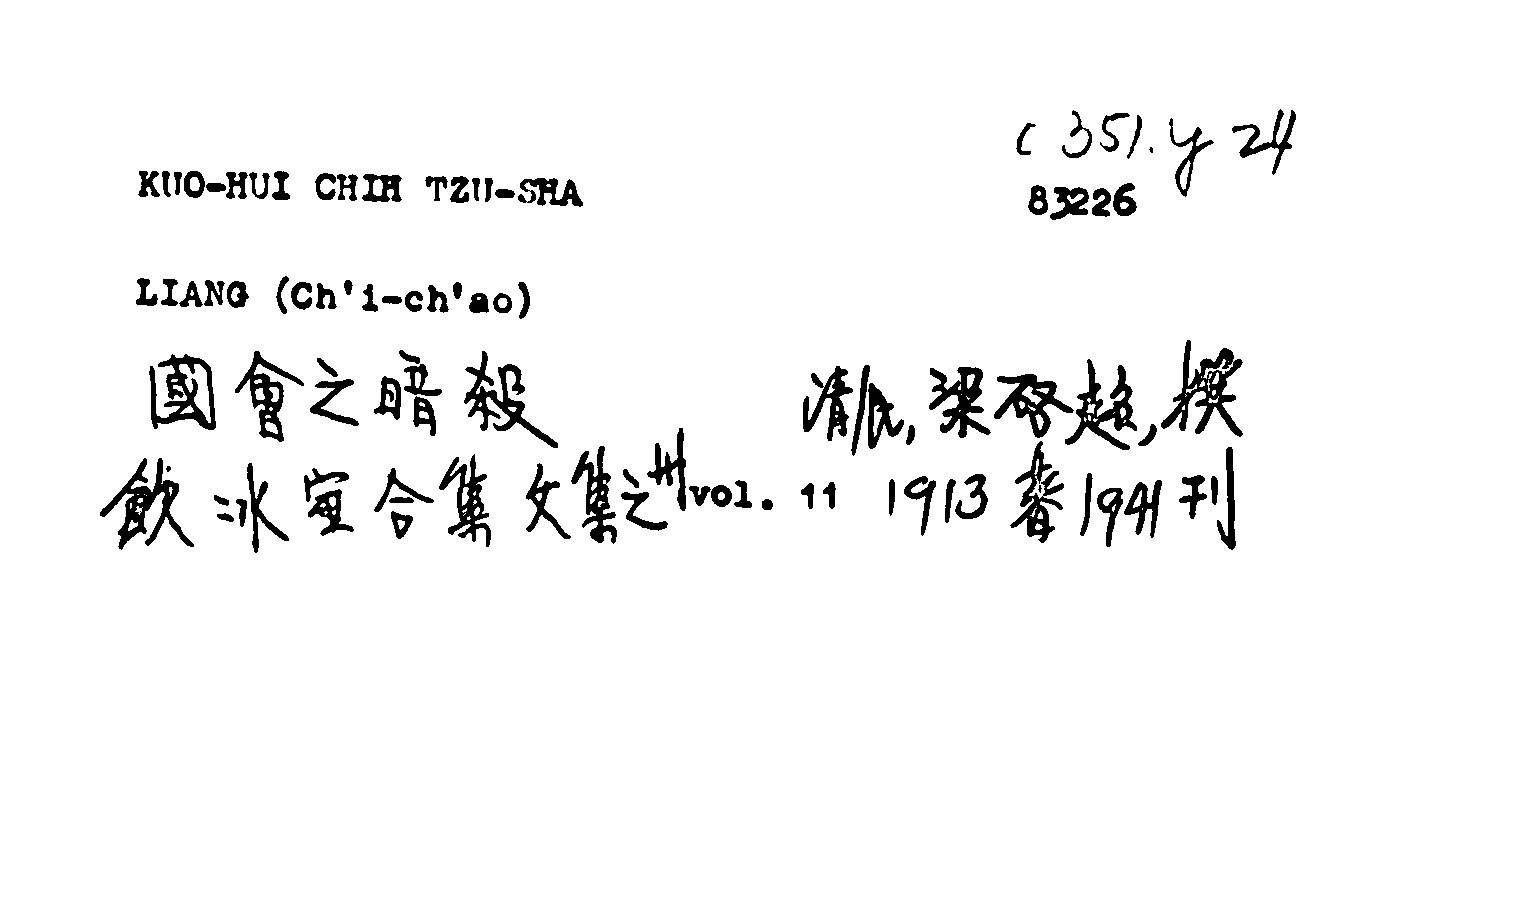 C 351. y 24
KUO-HUI CHIH TZU-SHA
83226
LIANG (Ch'i-ch'ao)
國會之暗殺 清/民, 梁啓超, 撰
飲冰室合集文集之卅 vol. 11 1913 著 1941 刊